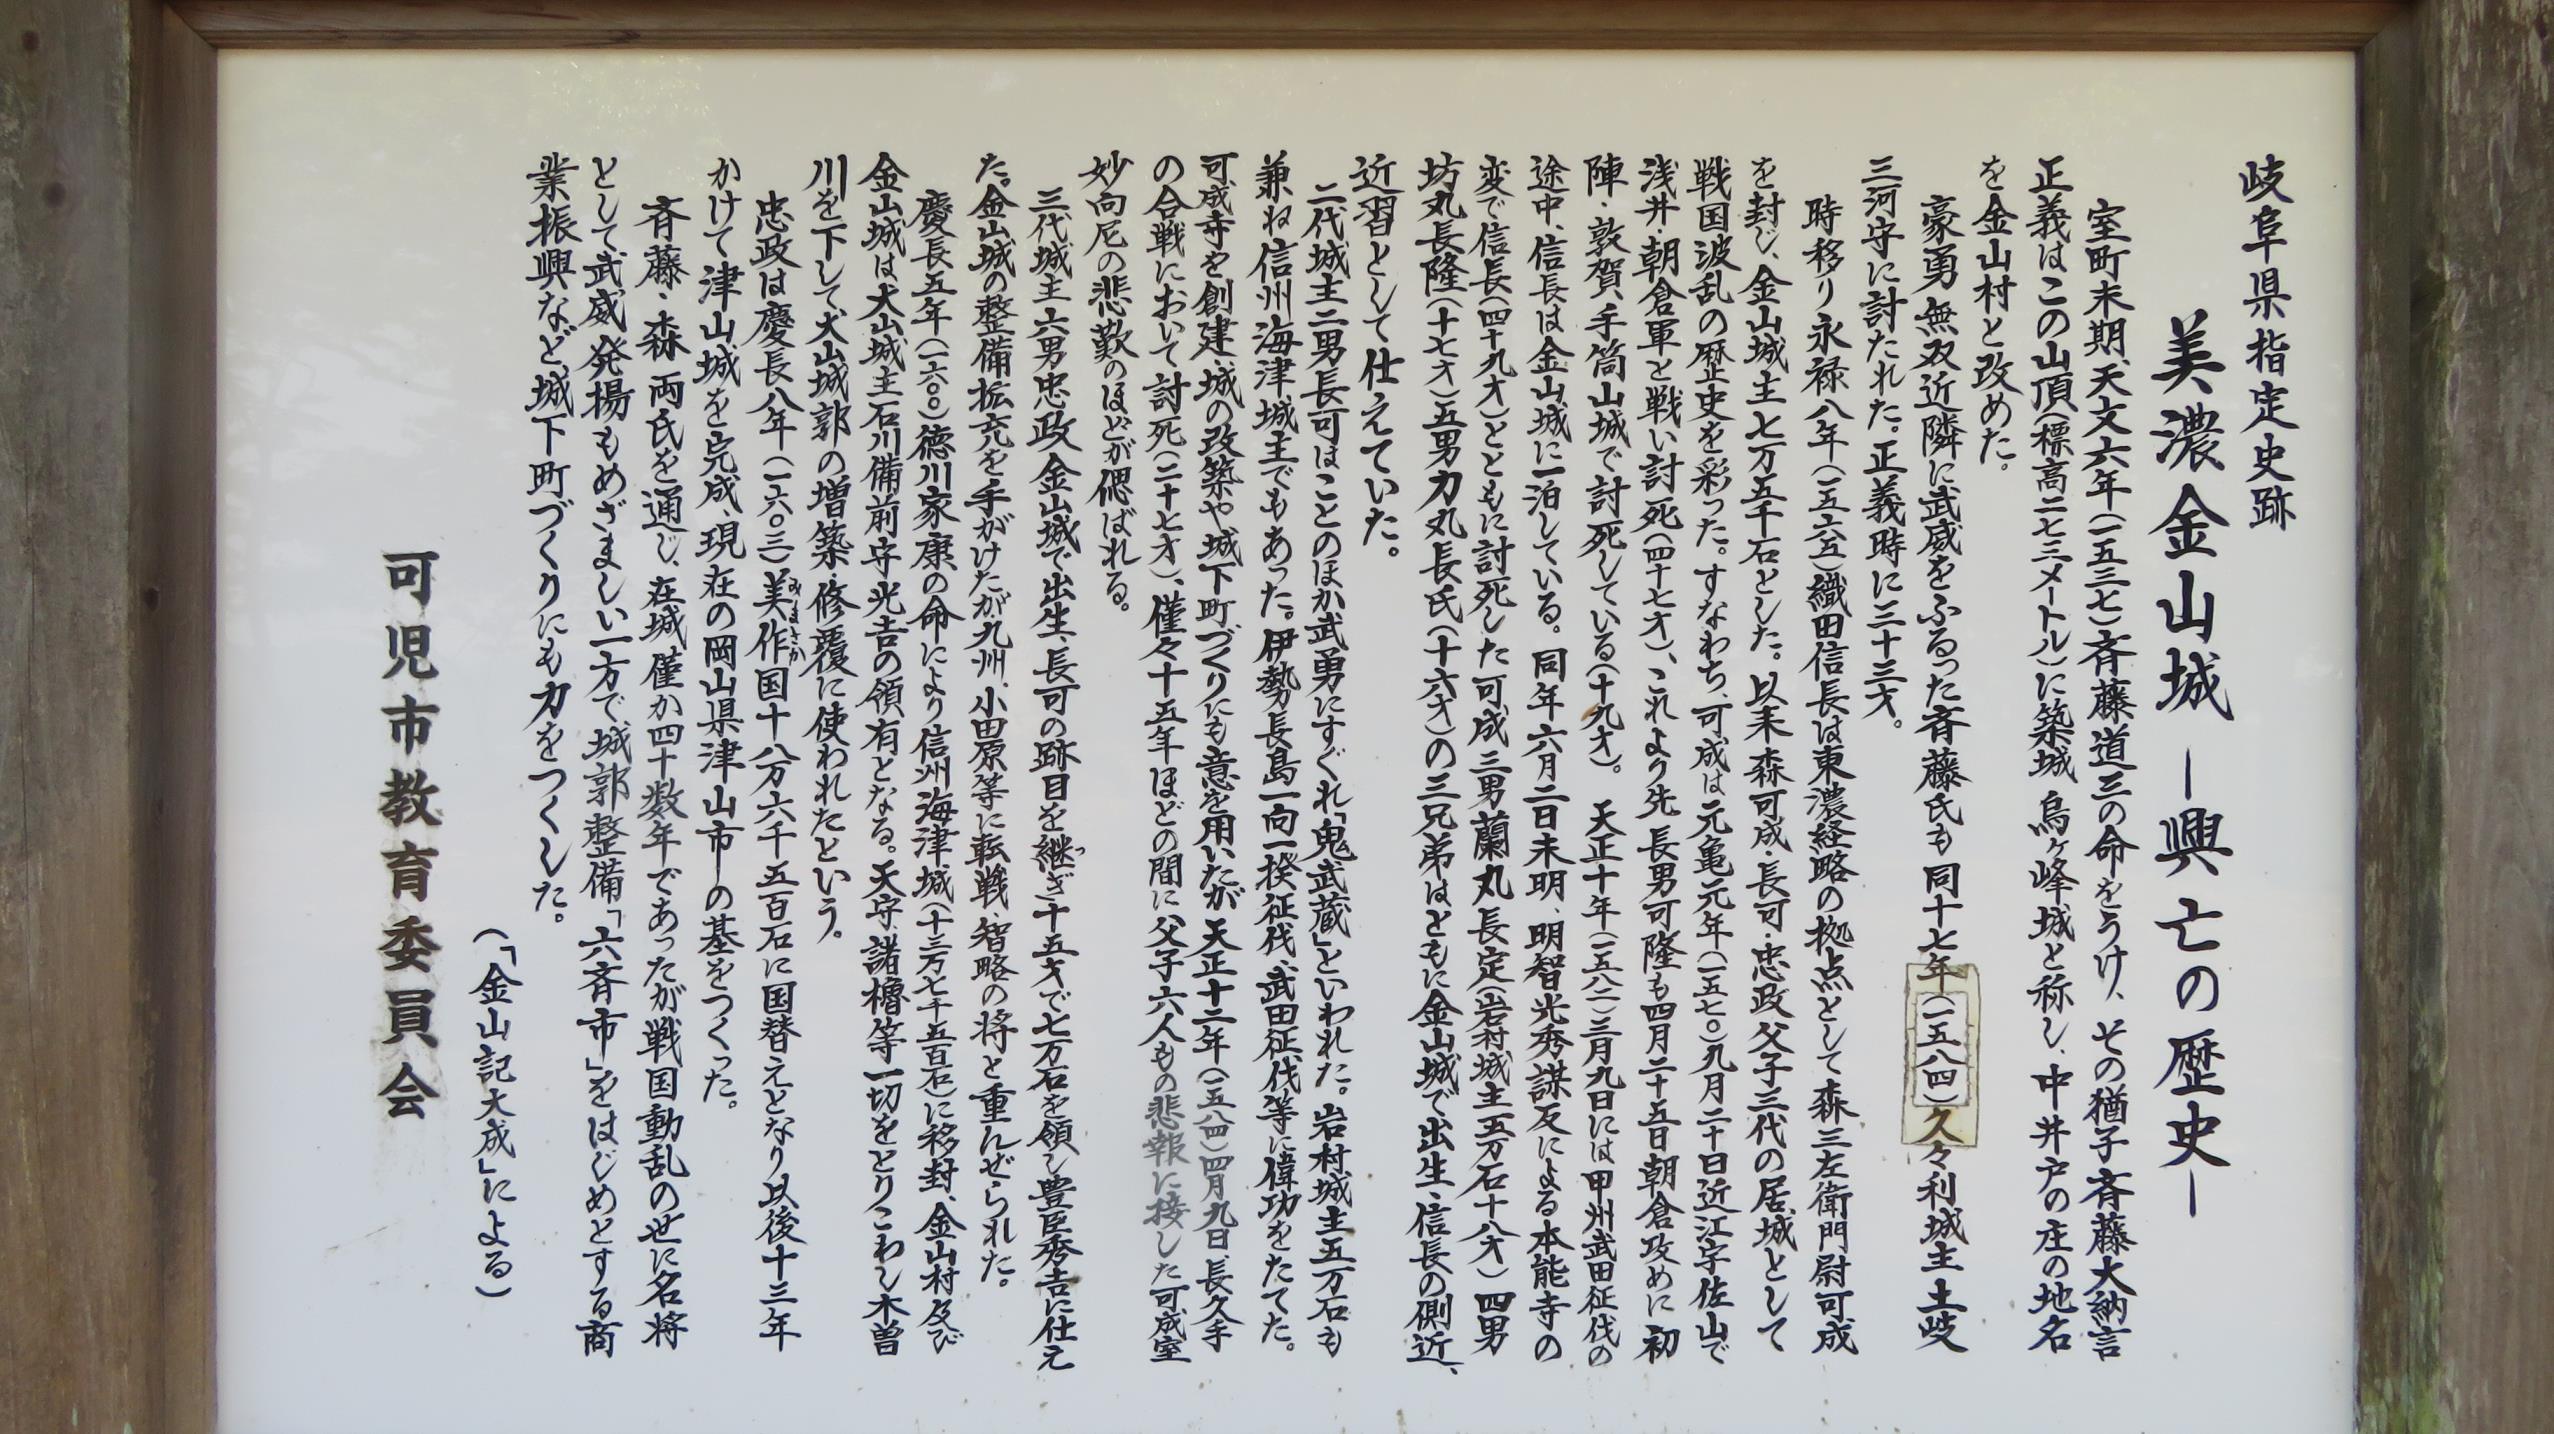 岐阜県指定史跡
美濃金山城 ―興亡の歴史―
室町末期、天文六年(一五三七)斉藤道三の命をうけ、その猶子斉藤大納言
正義はこの山頂(標高二七三メートル)に築城 烏ヶ峰城と称し、中井戸の庄の地名
を金山村と改めた。
豪勇無双近隣に武威をふるった斉藤氏も 同十七年(一五八四)久々利城主土岐
三河守に討たれた。正義時に三十三才。
時移り永禄八年(一五六五)織田信長は東濃経略の拠点として森三左衛門尉可成
を封じ、金山城主七万五千石とした。以来森可成・長可・忠政父子三代の居城として
戦国波乱の歴史を彩った。すなわち、可成は元亀元年(一五七〇)九月二十日近江宇佐山で
浅井・朝倉軍と戦い討死(四十七才)、これより先長男可隆も四月二十五日朝倉攻めに初
陣・敦賀、手筒山城で討死している(十九才)。 天正十年(一五八二)三月九日には甲州武田征伐の
途中、信長は金山城に一泊している。同年六月二日未明、明智光秀謀反による本能寺の
変で信長(四十九才)とともに討死した可成三男蘭丸長定(岩村城主五万石十八才)四男
坊丸長隆(十七才)五男力丸長氏(十六才)の三兄弟はともに金山城で出生、信長の側近、
近習として仕えていた。
二代城主二男長可はことのほか武勇にすぐれ「鬼武蔵」といわれた。岩村城主五万石も
兼ね信州海津城主でもあった。伊勢長島一向一揆征伐、武田征伐等に偉功をたてた。
可成寺を創建、城の改築や城下町づくりにも意を用いたが 天正十二年(一五八四)四月九日、長久手
の合戦において討死(二十七才)、僅々十五年ほどの間に父子六人もの悲報に接した可成室
妙向尼の悲歎のほどが偲ばれる。
三代城主六男忠政金山城で出生、長可の跡目を継ぎ十五才で七万石を領し豊臣秀吉に仕え
た。金山城の整備拡充を手がけたが、九州、小田原等に転戦、智略の将と重んぜられた。
慶長五年(一六〇〇)徳川家康の命により信州海津城(十三万七千五百石)に移封、金山村及び
金山城は犬山城主石川備前守光吉の領有となる。天守、諸櫓等一切をとりこわし木曽
川を下して犬山城郭の増築、修覆に使われたという。
忠政は慶長八年(一六〇三)美作国十八万六千五百石に国替えとなり以後十三年
かけて津山城を完成、現在の岡山県津山市の基をつくった。
斉藤・森両氏を通じ、在城僅か四十数年であったが戦国動乱の世に名将
として武威発揚もめざましい一方で城郭整備「六斉市」をはじめとする商
業振興など、城下町づくりにも力をつくした。
(「金山記大成」による)
可児市教育委員会